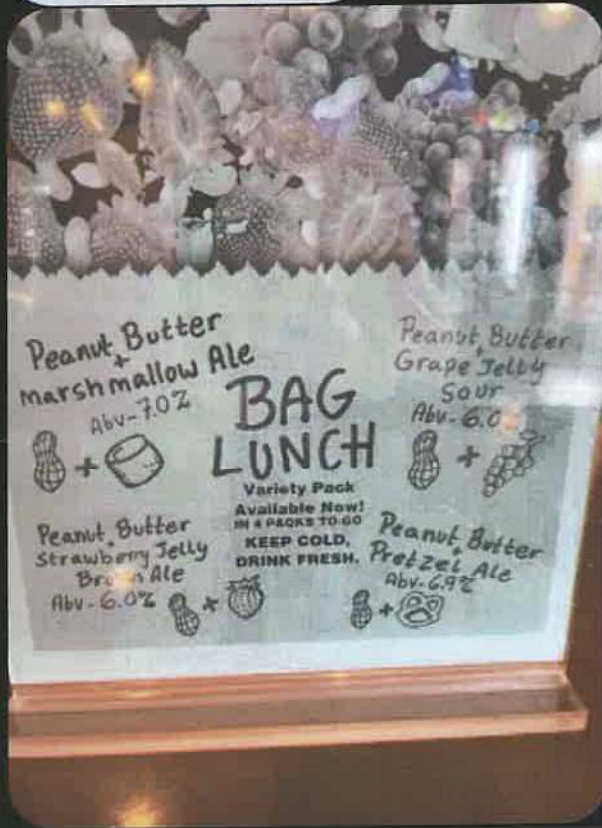 Peanut Butter
+
Marshmallow Ale
Abv-7.0%
+
BAG
LUNCH
Variety Pack
Available Now!
IN 4 PACKS TO-GO
KEEP COLD,
DRINK FRESH.
Peanut Butter
+
Grape Jelly
Sour
Abv-6.0
+
Peanut Butter
+
Strawberry Jelly
Brown Ale
Abv-6.0%
+
Peanut Butter
+
Pretzel Ale
Abv-6.9%
+